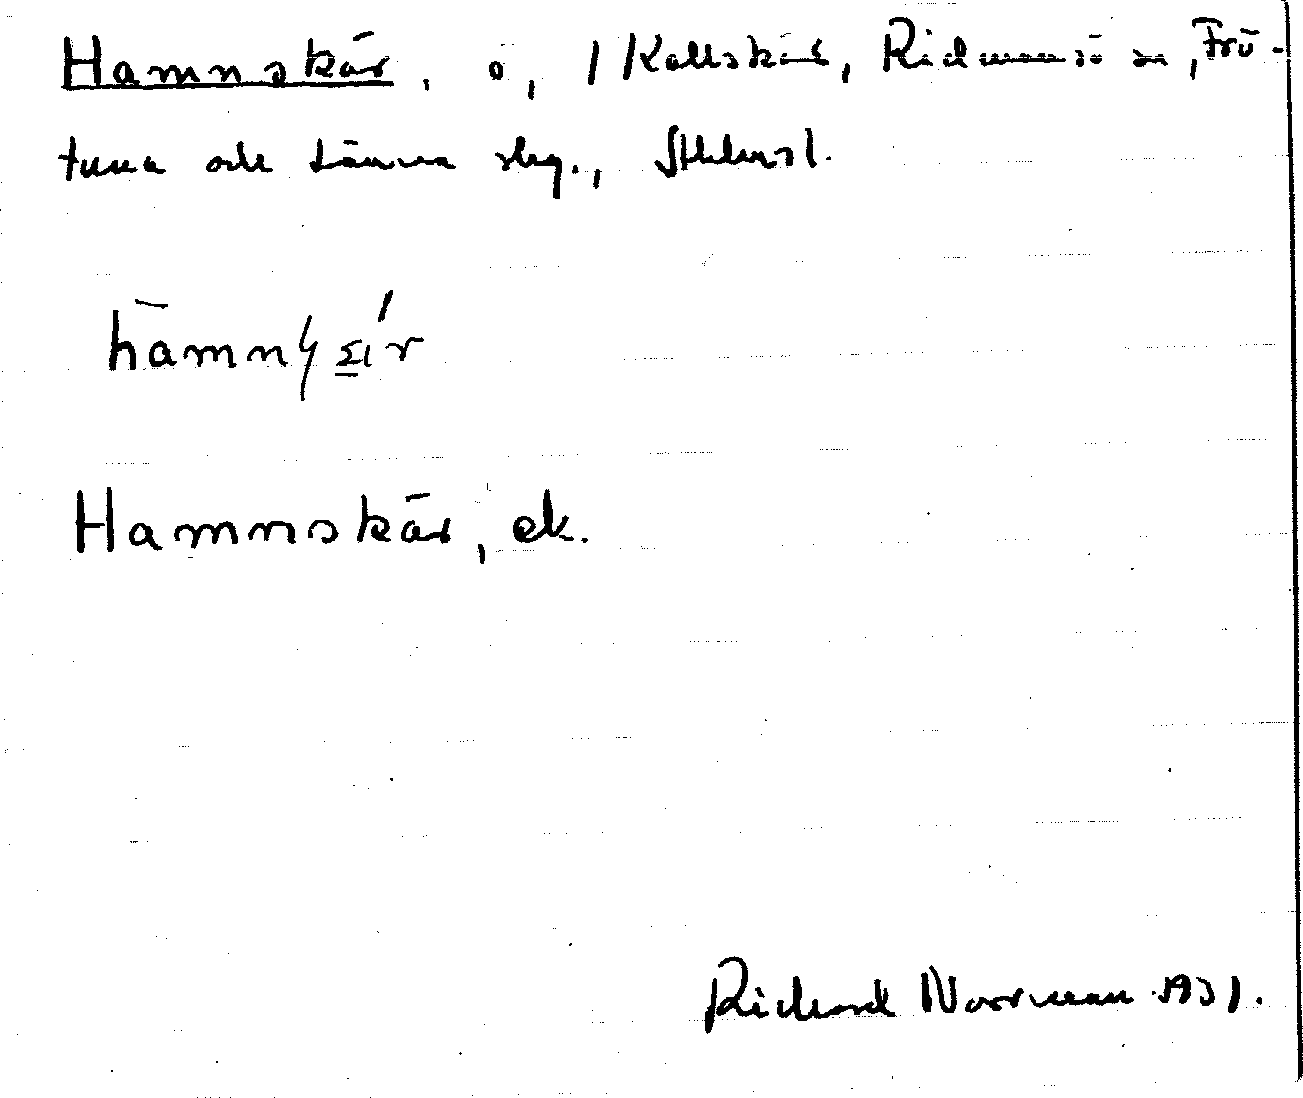 Hamnskär, ö, / Kallskär, Ridmansö sn, Frö-
tuna och Länna slg., Sthlmsl.
Hamnskär, ek.
Richard Norrman 1931.